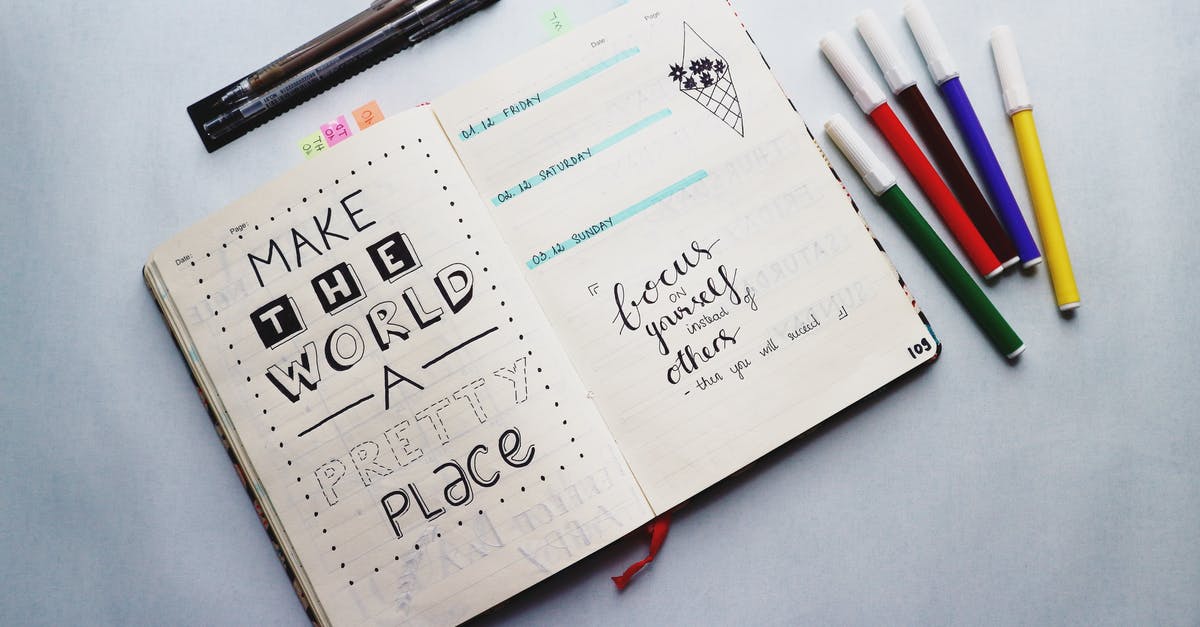 Date:
Page:
MAKE
THE
WORLD
A
PRETTY
PLace
Date:
Page:
01. 12 FRIDAY
02. 12 SATURDAY
03. 12 SUNDAY
focus
ON
yourself
instead of
others
- then you will succeed
109